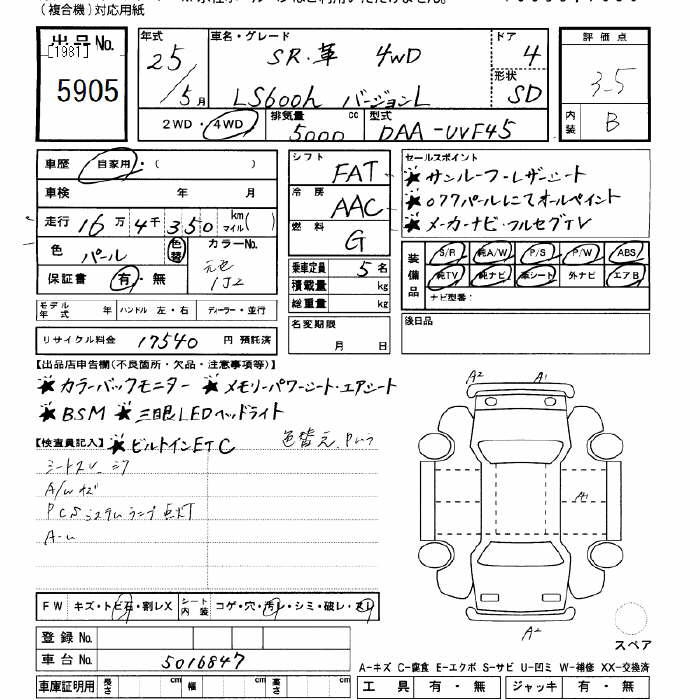 (複合機)対応用紙
出品No.
[1981]
5905
年式
25
5月
車名・グレード
SR.革 4WD
LS600h バージョンL
ドア
4
形状
SD
評価点
3.5
内装
B
2WD・4WD
排気量
5000 cc
型式
DAA-UVF45
車歴 自家用・( )
車検 年 月
走行 16万4千350 km マイル( )
色 パール 色替 カラーNo.
元色 1J2
保証書 有・無
モデル年式 年 ハンドル 左・右 ディーラー・並行
リサイクル料金 17540 円 預託済
シフト FAT
冷房 AAC
燃料 G
乗車定員 5 名
積載量 kg
総重量 kg
名変期限
月 日
セールスポイント
★サンルーフ・レザーシート
★077パールにてオールペイント
★メーカーナビ・フルセグTV
装備品
S/R 純A/W P/S P/W ABS
純TV 純ナビ 革シート 外ナビ エアB
ナビ型番:
後日品
【出品店申告欄(不良箇所・欠品・注意事項等)】
★カラーバックモニター ★メモリーパワーシート・エアシート
★BSM ★三眼LEDヘッドライト
【検査員記入】 ★ビルトインETC
色替え
シートスレ
A/Wキズ
PCSシステムランプ点灯
A2 A1
A1
A2
FW キズ・トビ石・割レX シート内装 コゲ・穴・汚レ・シミ・破レ・スレ
登録No.
車台No. 5016847
車庫証明用 長さ cm 幅 cm 高さ cm
スペア
A-キズ C-腐食 E-エクボ S-サビ U-凹ミ W-補修 XX-交換済
工具 有・無 ジャッキ 有・無